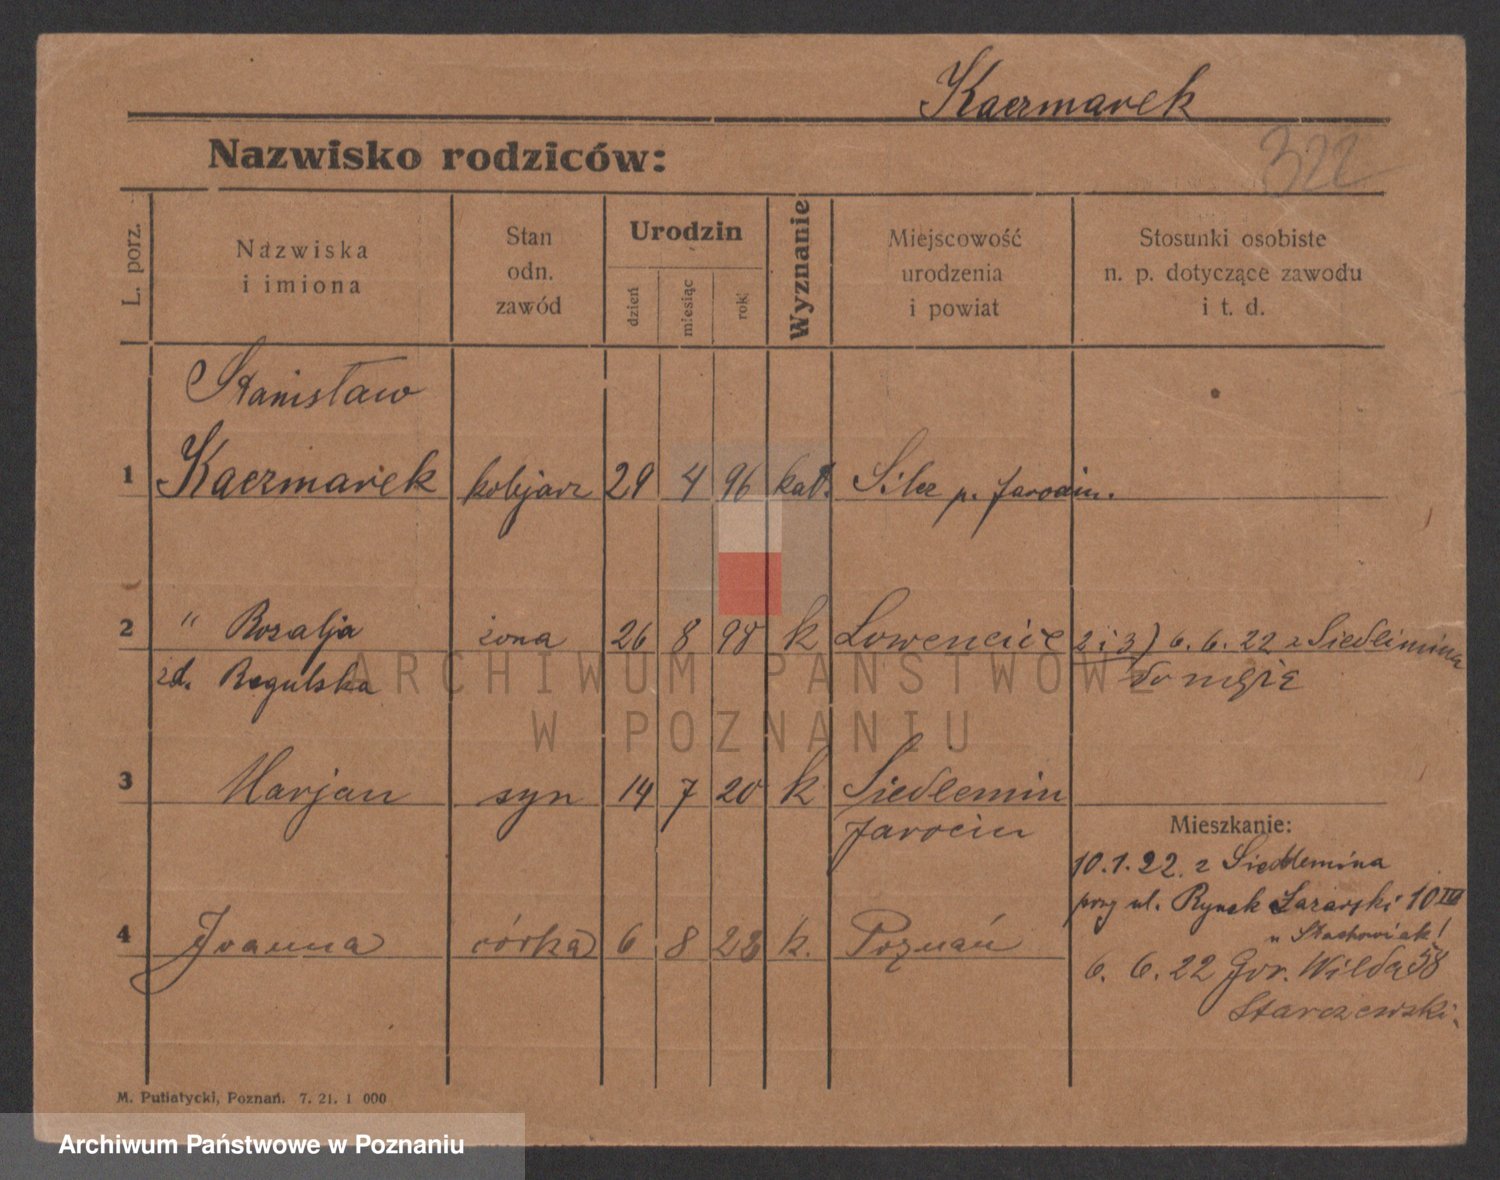 Kaczmarek
322
Nazwisko rodziców:
L. porz.
Nazwiska
i imiona
Stan
odn.
zawód
Urodzin
dzień
miesiąc
rok
Wyznanie
Miejscowość
urodzenia
i powiat
Stosunki osobiste
n. p. dotyczące zawodu
i t. d.
Stanisław
1 Kaczmarek kolejarz 29 4 96 kat. Silec p. Jarocin.
2 " Rozalja żona 26 8 98 k Lowencice 2 i 3) 6. 6. 22 z Siedlimina
zd. Regulska do męża
3 Marjan syn 14 7 20 k Siedlemin
Jarocin
Mieszkanie:
10.1.22. z Siedlemina
przy ul. Rynek Łazarski 10 III
4 Joanna córka 6 8 23 k. Poznań
u Stachowiak!
6. 6. 22 Gór. Wilda 58
Starczewski.
M. Putiatycki, Poznań. 7. 21. 1 000
ARCHIWUM PAŃSTWOWE
W POZNANIU
Archiwum Państwowe w Poznaniu